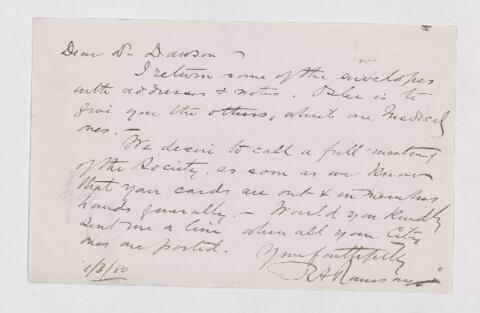 Dear Dr Dawson -
I return some of the envelopes
with addresses & notes. Osler is to
give you the others, which are Medical
ones. -
We desire to call a full meeting
of the Society, as soon as we know
that your cards are out & in members
hands generally. - Would you kindly
send me a line when all your City
ones are posted.
Yours faithfully
R A Ramsay
1/3/80